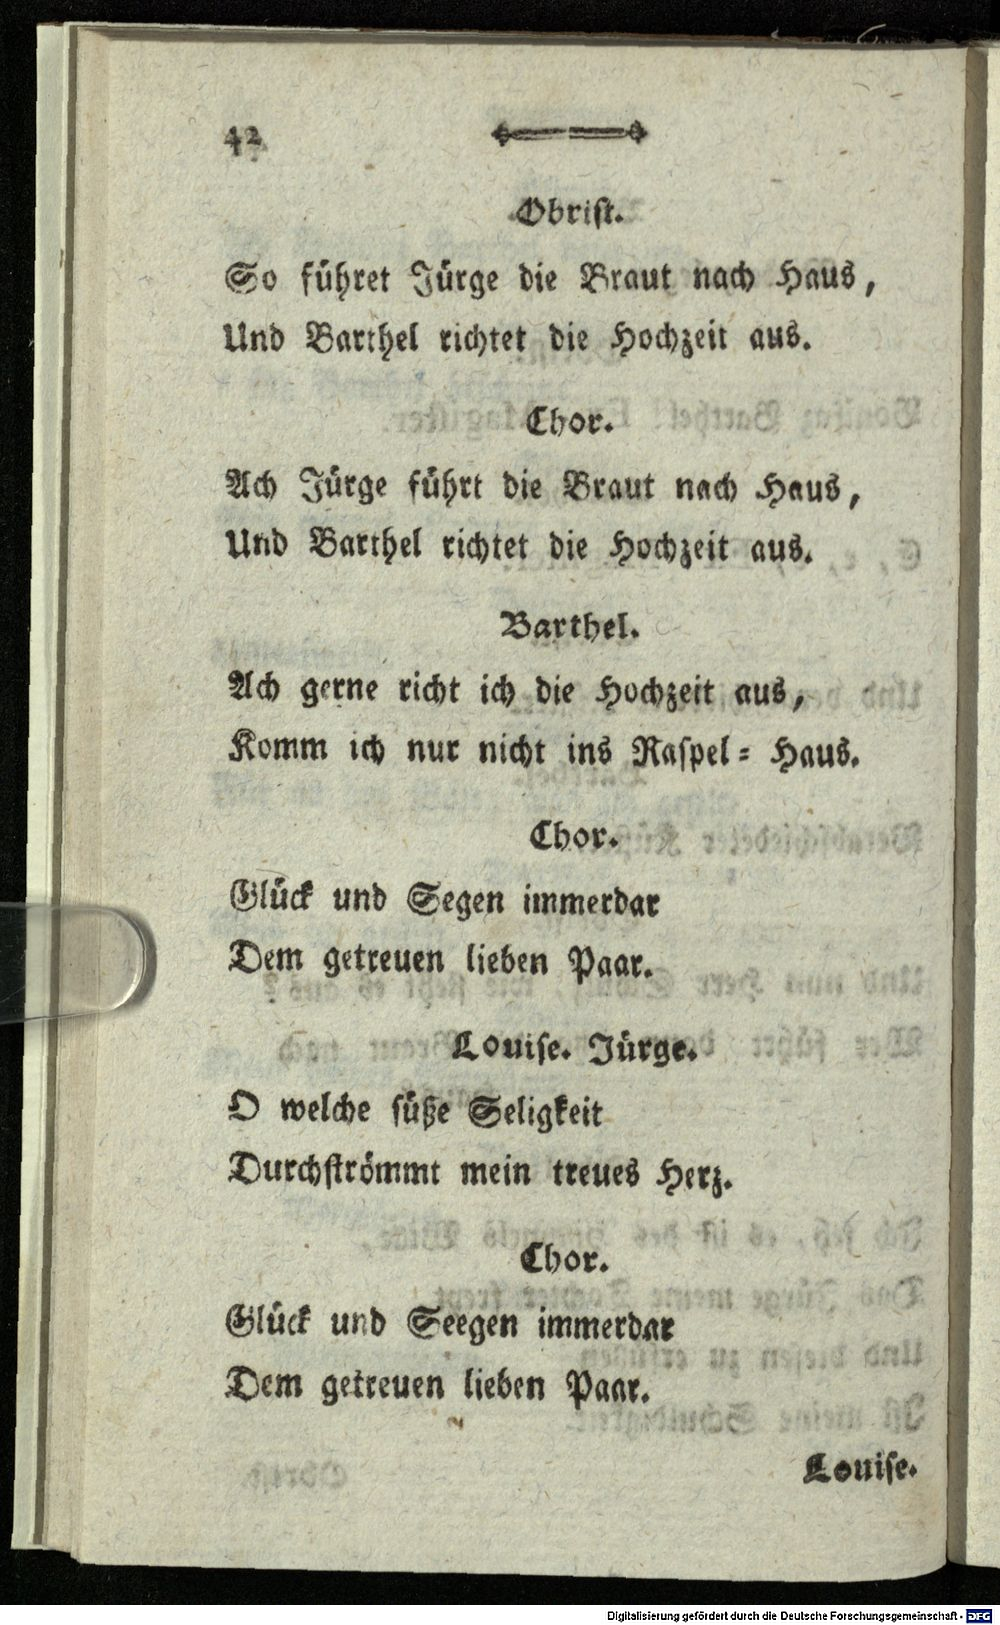 42
Obrist.
So führet Jürge die Braut nach Haus,
Und Barthel richtet die Hochzeit aus.
Chor.
Ach Jürge führt die Braut nach Haus,
Und Barthel richtet die Hochzeit aus.
Barthel.
Ach gerne richt ich die Hochzeit aus,
Komm ich nur nicht ins Raſpel⸗ Haus.
Chor.
Glück und Segen immerdar
Dem getreuen lieben Paar.
Louiſe. Jürge.
O welche ſüße Seligkeit
Durchſtrömmt mein treues Herz.
Chor.
Glück und Seegen immerdar
Dem getreuen lieben Paar.
Louiſe.
Digitalisierung gefördert durch die Deutsche Forschungsgemeinschaft - DFG